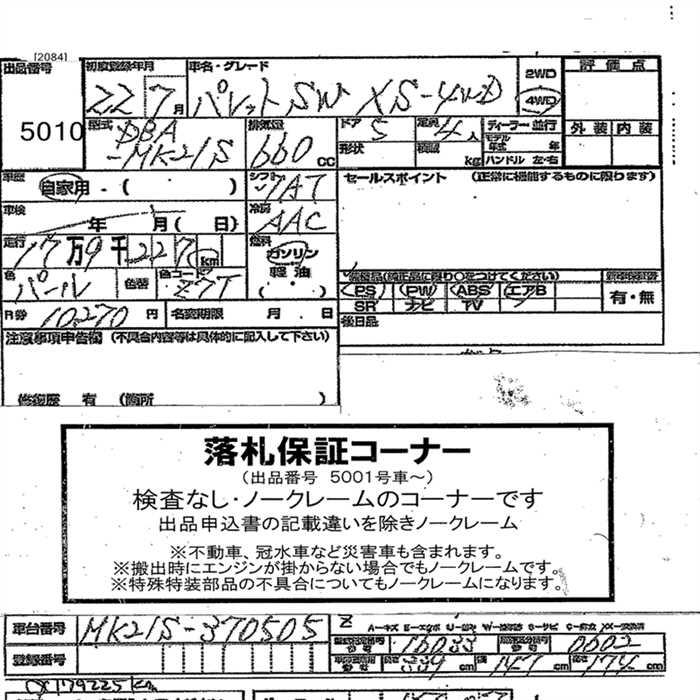 [2084]
出品番号
5010
初度登録年月
22 7月
車名・グレード
パレットSW XS-4WD
2WD
4WD
評価点
外装 内装
型式
DBA
-MK21S
排気量
660 cc
ドア
5
形状
定員
4人
積載
kg
ディーラー・並行
モデル年式 年
ハンドル 左・右
車歴
自家用・( )
シフト
7AT
セールスポイント (正常に機能するものに限ります)
車検
年 月( 日)
冷房
AAC
走行
17万9千227km
燃料
ガソリン
軽油
( ・ )
色
パール
色替
色コード
Z7T
装備品(純正品に限り○をつけてください)
PS PW ABS エアB
SR ナビ TV
新車保証書
有・無
R券
10,270円
名変期限 月 日
後日品
注意事項申告欄 (不具合内容等は具体的に記入して下さい)
修復歴 有 (箇所 )
落札保証コーナー
(出品番号 5001号車~)
検査なし・ノークレームのコーナーです
出品申込書の記載違いを除きノークレーム
※不動車、冠水車など災害車も含まれます。
※搬出時にエンジンが掛からない場合でもノークレームです。
※特殊特装部品の不具合についてもノークレームになります。
車台番号
MK21S-370505
登録番号
型式指定番号
16033
類別区分番号
0602
長さ 339cm 幅 147cm 高さ 174cm
179225km